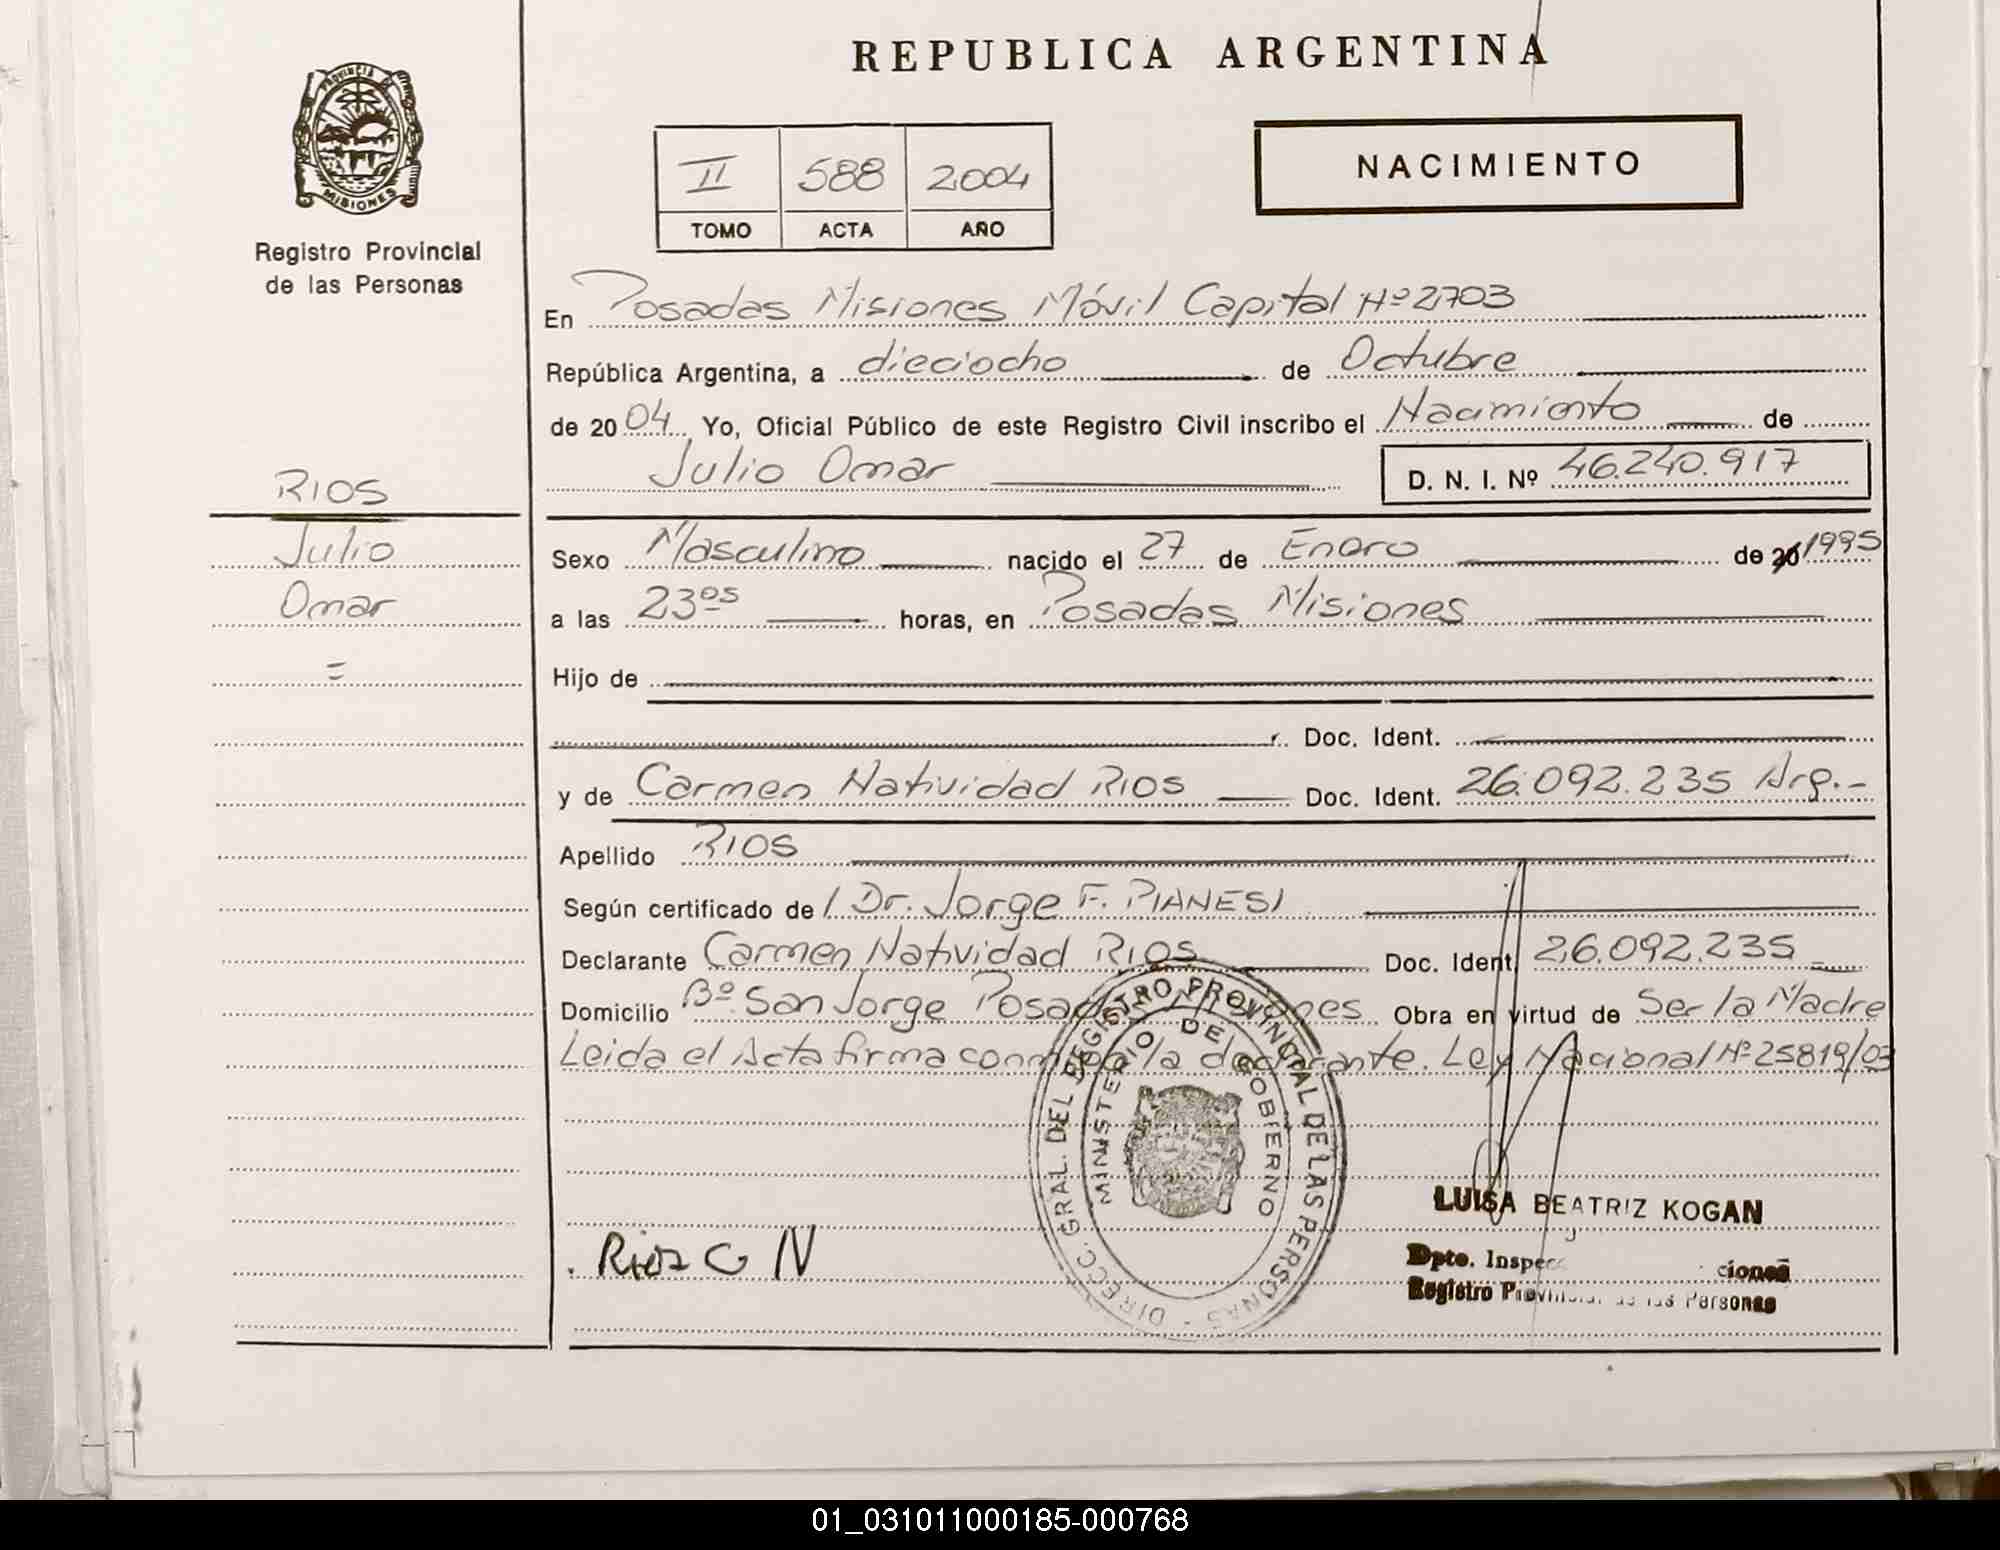 REPUBLICA ARGENTINA
PROVINCIA DE
MISIONES
Registro Provincial
de las Personas
II 588 2004
TOMO ACTA AÑO
NACIMIENTO
En Posadas Misiones Móvil Capital Nº 2703
República Argentina, a dieciocho de Octubre
de 2004 Yo, Oficial Público de este Registro Civil inscribo el Nacimiento de
Julio Omar D. N. I. Nº 46.240.917
RIOS
Julio
Omar
=
Sexo Masculino nacido el 27 de Enero de 20 1995
a las 23 os horas, en Posadas Misiones
Hijo de
Doc. Ident.
y de Carmen Natividad RIOS Doc. Ident. 26.092.235 Arg.-
Apellido RIOS
Según certificado de / Dr. Jorge F. PIANESI
Declarante Carmen Natividad RIOS Doc. Ident. 26.092.235
Domicilio Bº San Jorge Posadas Misiones Obra en virtud de Ser la Madre
Leida el Acta firma conmigo la declarante. Ley Nacional Nº 25819/03
DIRECC. GRAL. DEL REGISTRO PROVINCIAL DE LAS PERSONAS -
MINISTERIO DE GOBIERNO
Rios C N
LUISA BEATRIZ KOGAN
Dpto. Inspec ciones
Registro Provincial de las Personas
01_031011000185-000768